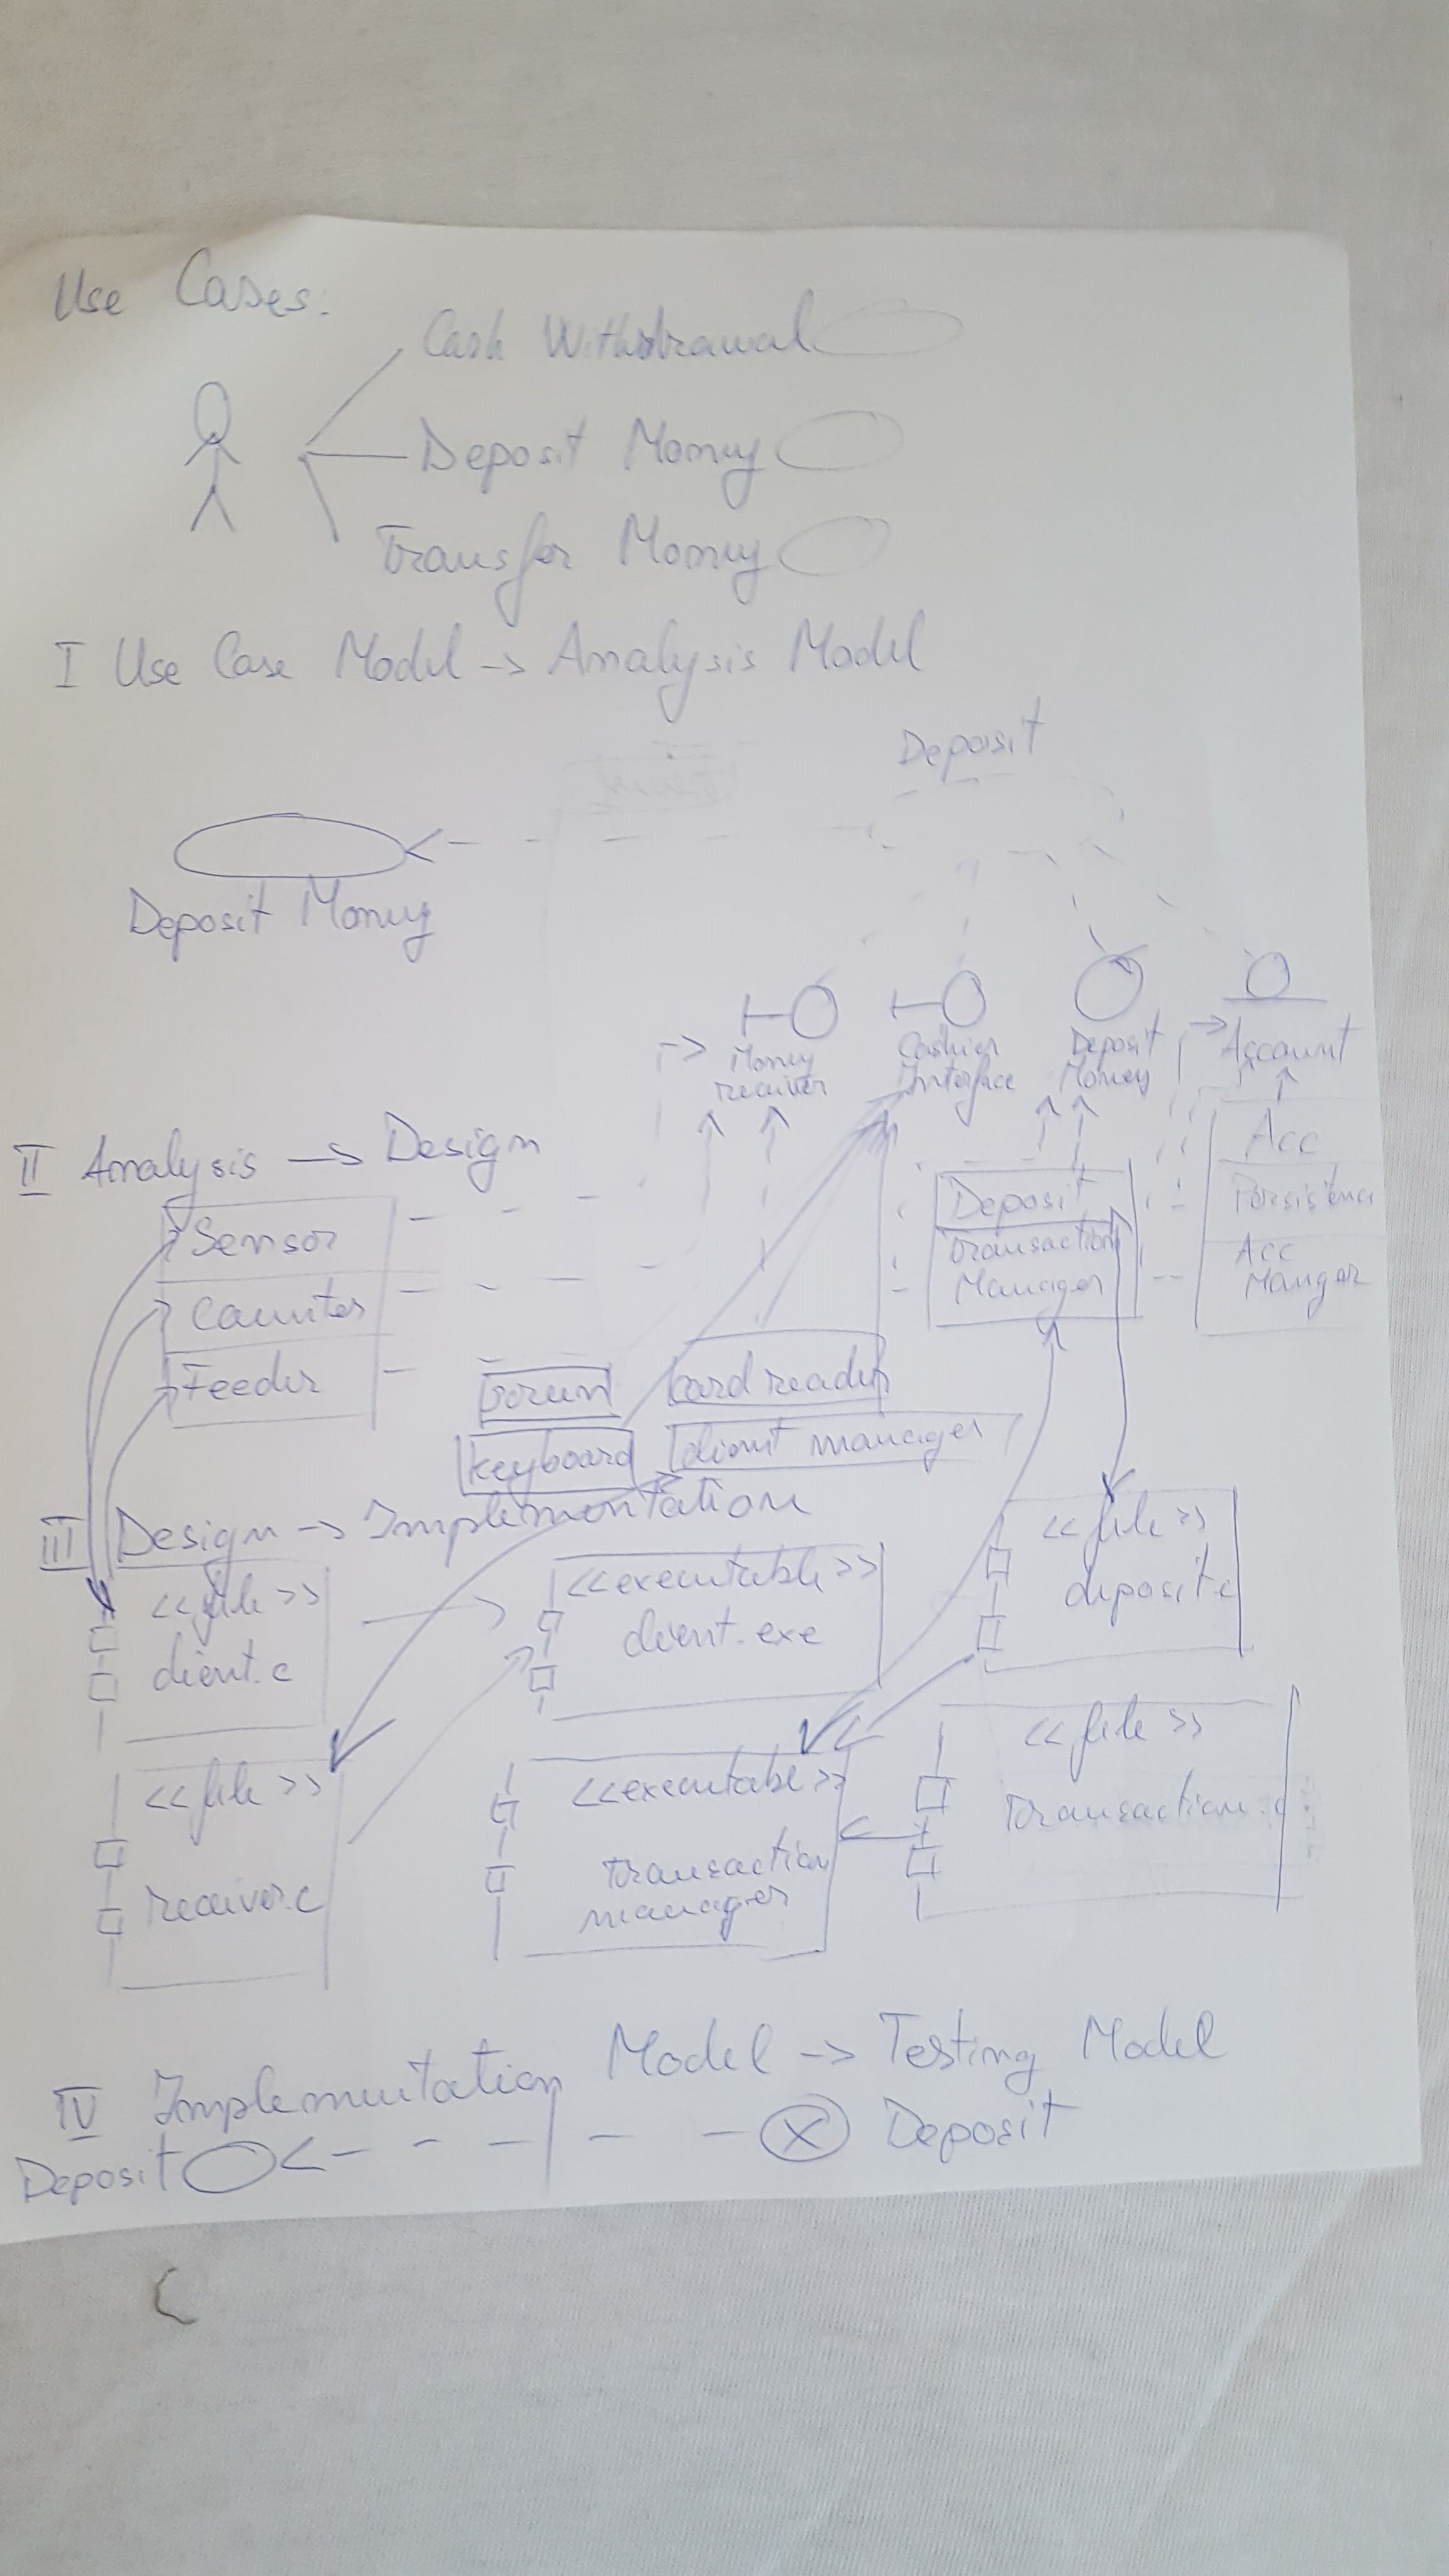 Use Cases:
Cash Withdrawal
Deposit Money
Transfer Money
I Use Case Model -> Analysis Model
Deposit
Deposit Money
Money
receiver
Cashier
Interface
Deposit
Money
Account
II Analysis -> Design
Sensor
Counter
Feeder
keyboard
card reader
client manager
Deposit
Transaction
Manager
Acc
Persistence
Acc
Manger
III Design -> Implementation
<<file>>
client.c
<<executable>>
client.exe
<<file>>
deposit.c
<<file>>
receiver.c
<<executable>>
transaction
manager
<<file>>
transaction.c
IV Implementation Model -> Testing Model
Deposit
Deposit